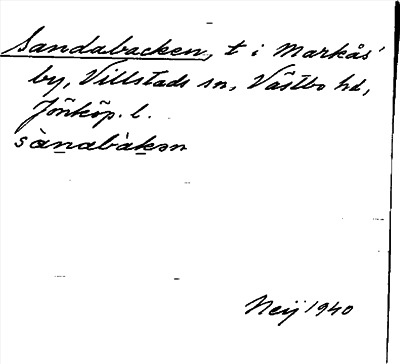 Sandabacken, t i Markås'
by, Villstads sn, Västbo hd,
Jönköp. l.
sàndabàkən
Neij 1940